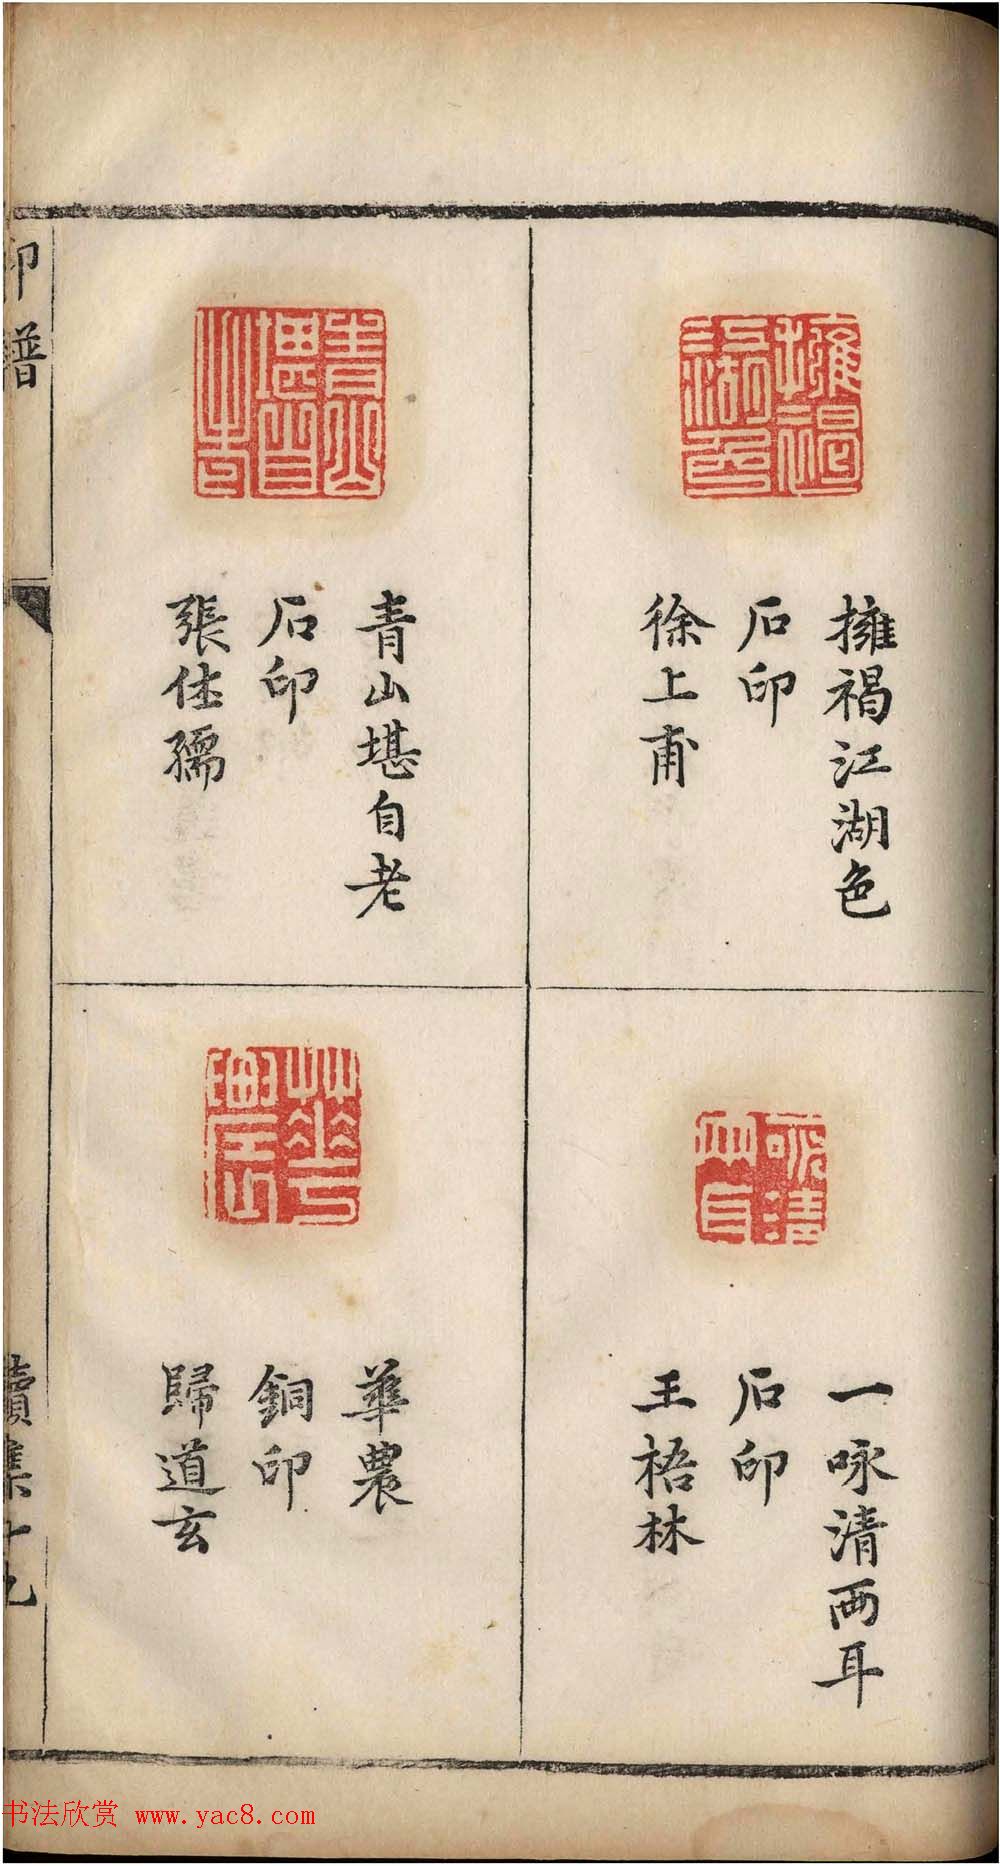 擁褐江湖色
石印
徐上甫
一咏清兩耳
石印
王梧林
青山堪自老
石印
張仕孺
華農
銅印
歸道玄
印譜
續集十九
书法欣赏 www.yac8.com